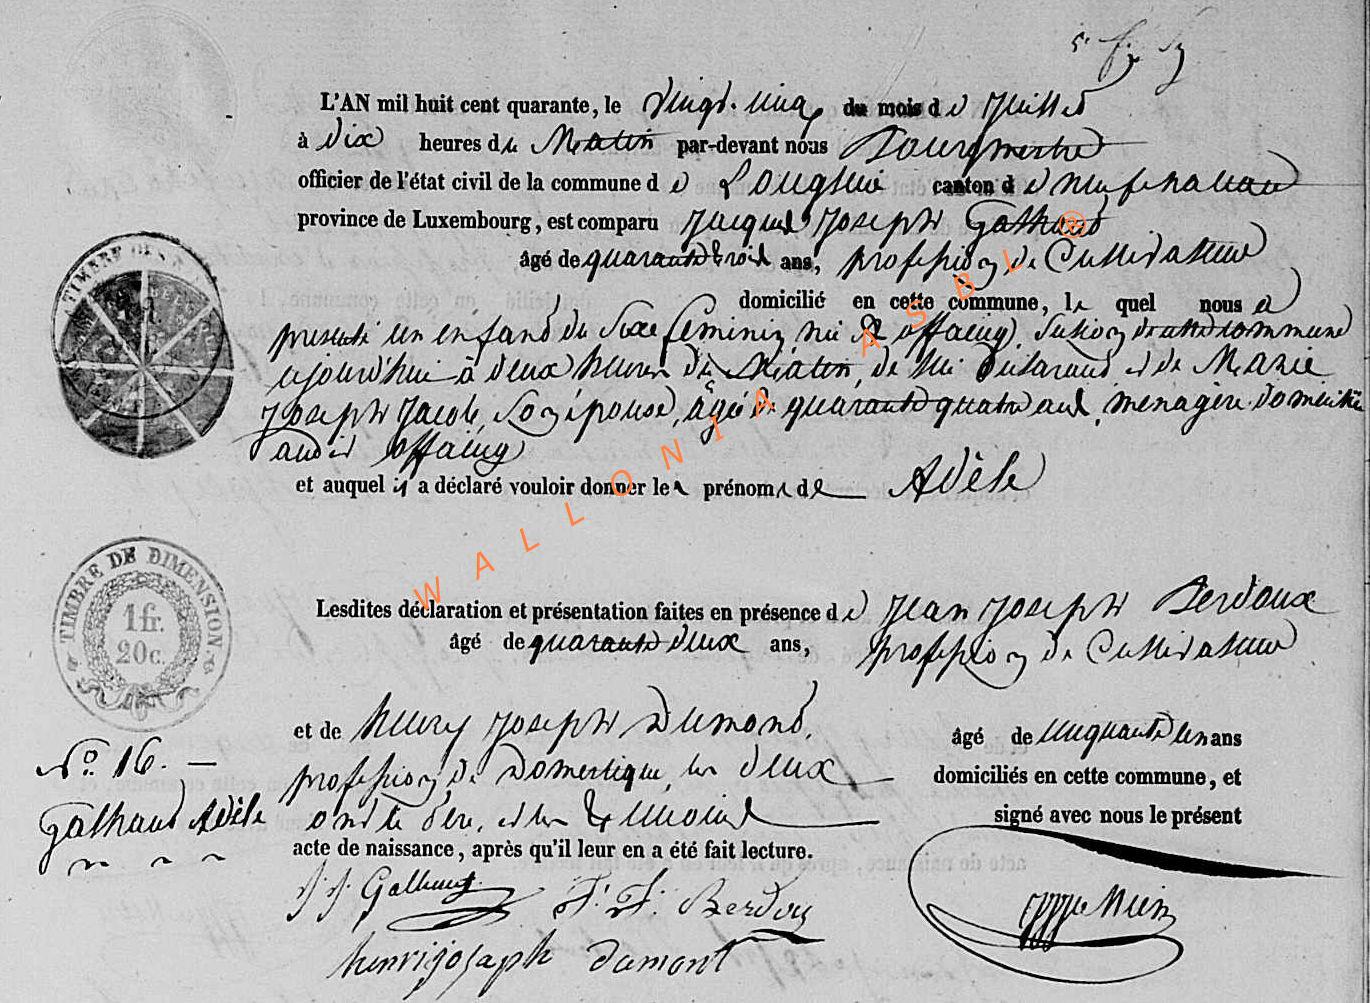 L'AN mil huit cent quarante, le vingt-cinq du mois de Juillet
à dix heures du Matin par-devant nous Bourgmestre
officier de l'état civil de la commune de Longlier canton de neufchateau
province de Luxembourg, est comparu Jacques Joseph Galhaut
âgé de quarante trois ans, profession de Cultivateur
domicilié en cette commune, lequel nous a
presenté un enfant du Sexe feminin né à offaing, Section de cette commune
aujourd'hui à deux heures du Matin, de lui déclarant et de Marie
Joseph Jacob, Son épouse, âgée de quarante quatre ans, menagère domiciliée
audit offaing
et auquel il a déclaré vouloir donner le prénom de Adèle
TIMBRE DE DIMENSION
1 fr.
20 c.
Lesdites déclaration et présentation faites en présence de Jean Joseph Berdoux
âgé de quarante deux ans, profession de Cultivateur
et de henry Joseph Dumont, âgé de cinquante un ans
profession de Domestique, les deux domiciliés en cette commune, et
signé avec nous le présent
acte de naissance, après qu'il leur en a été fait lecture.
No. 16. —
Galhaut Adèle
J. J. Galhaut
J. J. Berdoux
henri joseph dumont
WALLONIA ASBL @